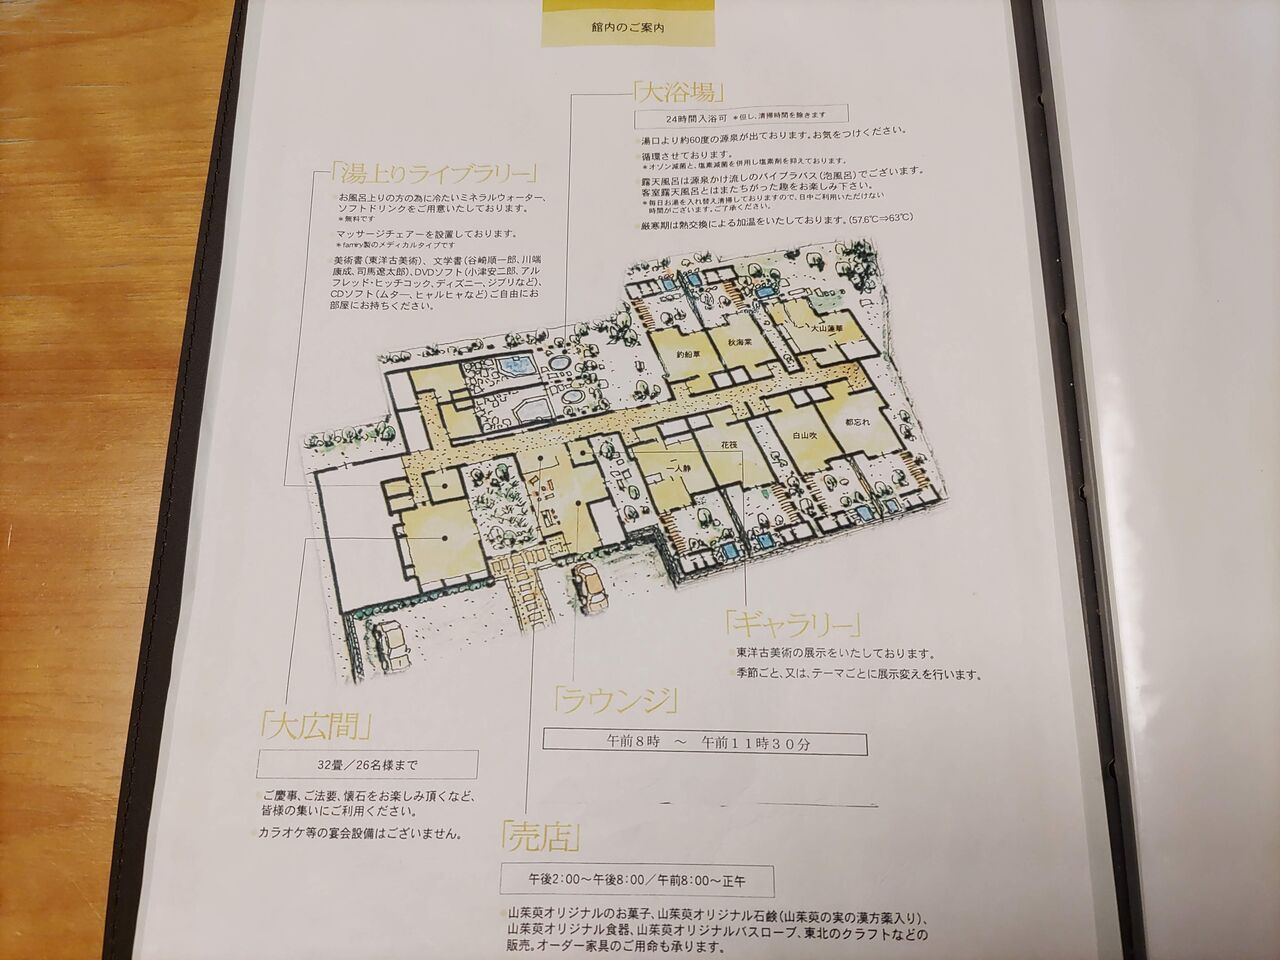 館内のご案内
「大浴場」
24時間入浴可 *但し、清掃時間を除きます
湯口より約60度の源泉が出ております。お気をつけください。
循環させております。
*オゾン滅菌と、塩素滅菌を併用し塩素剤を抑えております。
露天風呂は源泉かけ流しのバイブラバス(泡風呂)でございます。
客室露天風呂とはまたちがった趣をお楽しみ下さい。
*毎日お湯を入れ替え清掃しておりますので、日中ご利用いただけない
時間がございます。ご了承ください。
厳寒期は熱交換による加温をいたしております。(57.6℃⇒63℃)
「湯上りライブラリー」
お風呂上りの方の為に冷たいミネラルウォーター、
ソフトドリンクをご用意いたしております。
*無料です
マッサージチェアーを設置しております。
*family製のメディカルタイプです
美術書(東洋古美術)、文学書(谷崎順一郎、川端
康成、司馬遼太郎)、DVDソフト(小津安二郎、アル
フレッド・ヒッチコック、ディズニー、ジブリなど)、
CDソフト(ムター、ヒャルヒャなど)ご自由にお
部屋にお持ちください。
大山蓮華
秋海棠
釣船草
都忘れ
白山吹
花筏
一人静
「ギャラリー」
東洋古美術の展示をいたしております。
季節ごと、又は、テーマごとに展示変えを行います。
「ラウンジ」
午前8時 ～ 午前11時30分
「大広間」
32畳／26名様まで
ご慶事、ご法要、懐石をお楽しみ頂くなど、
皆様の集いにご利用ください。
カラオケ等の宴会設備はございません。
「売店」
午後2:00～午後8:00／午前8:00～正午
山茱萸オリジナルのお菓子、山茱萸オリジナル石鹸(山茱萸の実の漢方薬入り)、
山茱萸オリジナル食器、山茱萸オリジナルバスローブ、東北のクラフトなどの
販売。オーダー家具のご用命も承ります。